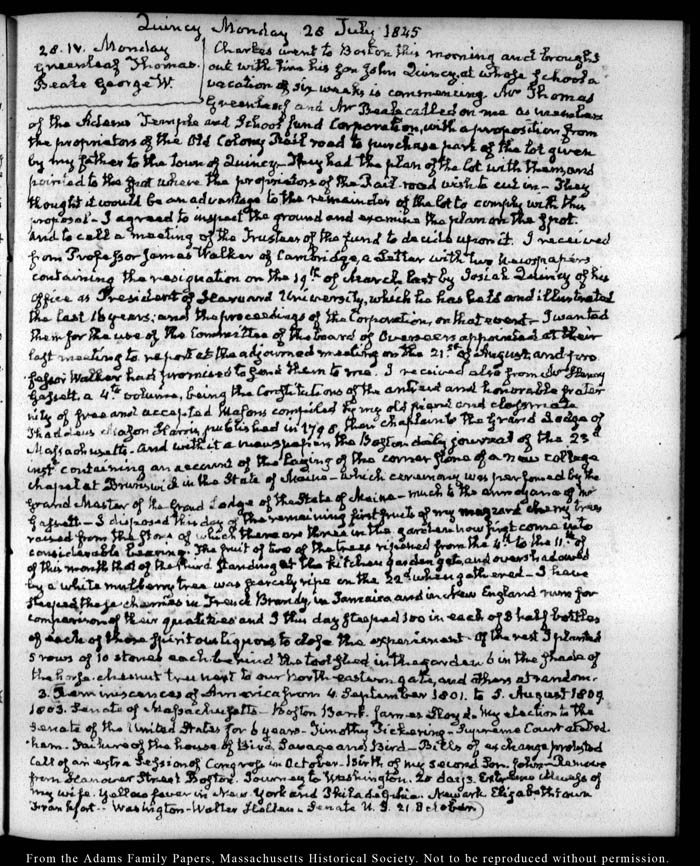 Quincy Monday 28 July 1845
28. IV. Monday
Greenleaf Thomas.
Beale George W.
Charles went to Boston this morning and brought
out with him his son John Quincy, at whose School a
vacation of six weeks is commencing Mr Thomas
Greenleaf and Mr Beale called on me as members
of the Adams Temple and School fund Corporation, with a proposition from
the proprietors of the Old Colony Rail road to purchase part of the lot given
by my father to the town of Quincy— They had the plan of the lot with them, and
pointed to the spot where the proprietors of the Rail road wish to cut in— They
thought it would be an advantage to the remainder of the lot to comply with this
proposal— I agreed to inspect the ground and examine the plan on the spot.
and to call a meeting of the Trustees of the fund to decide upon it. I received
from Professor James Walker of Cambridge, a Letter with two Newspapers
containing the resignation on the 19th of March last by Josiah Quincy of his
Office as President of Harvard University, which he has held and illustrated
the last 16 years; and the proceedings of the Corporation, on that event— I wanted
them for the use of the Committee of the board of Overseers appointed at their
last meeting to report at the adjourned meeting on the 21st of August, and Pro-
fessor Walker had promised to send them to me. I received also from Mr Henry
Gassett, a 4th volume, being the Constitutions of the antient and honorable frater-
nity of free and accepted Masons compiled by my old friend and classmate
Thaddeus Mason Harris, published in 1798, then chaplain to the Grand Lodge of
Massachusetts— and with it a newspaper the Boston daily journal of the 23d
inst containing an account of the laying of the corner stone of a new college
chapel at Brunswick in the State of Maine— which ceremony was performed by the
Grand Master of the Grand Lodge of the State of Maine— much to the annoyance of Mr
Gassett— I disposed this day of the remaining first fruits of my mazzard cherry trees
raised from the stone of which there are three in the garden now first come into
considerable bearing. The fruit of two of the trees ripened from the 4th to the 11th of
of this month that of the third standing at the kitchen garden gate, and overshadowed
by a white mulberry tree was scarcely ripe on the 22d when gathered— I have
steeped these cherries in French Brandy, in Jamaica and in New England rum for
comparison of their qualities and I this day steeped 100 in each of 3 half bottles
of each of those spiritous liquors to close the experiment— Of the rest I planted
5 rows of 10 stones each behind the tool shed in the garden 6 in the shade of
the horse chesnut tree next to our North eastern gate, and others at random.
3. Reminiscences of America from 4. September 1801. to 5. August 1809
1803. Senate of Massachusetts— Boston Bank. James Lloyd. My election to the
Senate of the United States for 6 years— Timothy Pickering— Supreme Court at Ded-
ham. Failure of the house of Bird, Savage and Bird— Bills of exchange protested
Call of an extra Session of Congress in October. Birth of my second Son. John— Remove
from Hanover Street Boston. Journey to Washington. 20 days. Extreme illness of
my wife. Yellow fever in New. York and Philadelphia. Newark Elizabeth town
Frankfort— Washington— Walter Hellen— Senate U.S. 21. October.
From the Adams Family Papers, Massachusetts Historical Society. Not to be reproduced without permission.